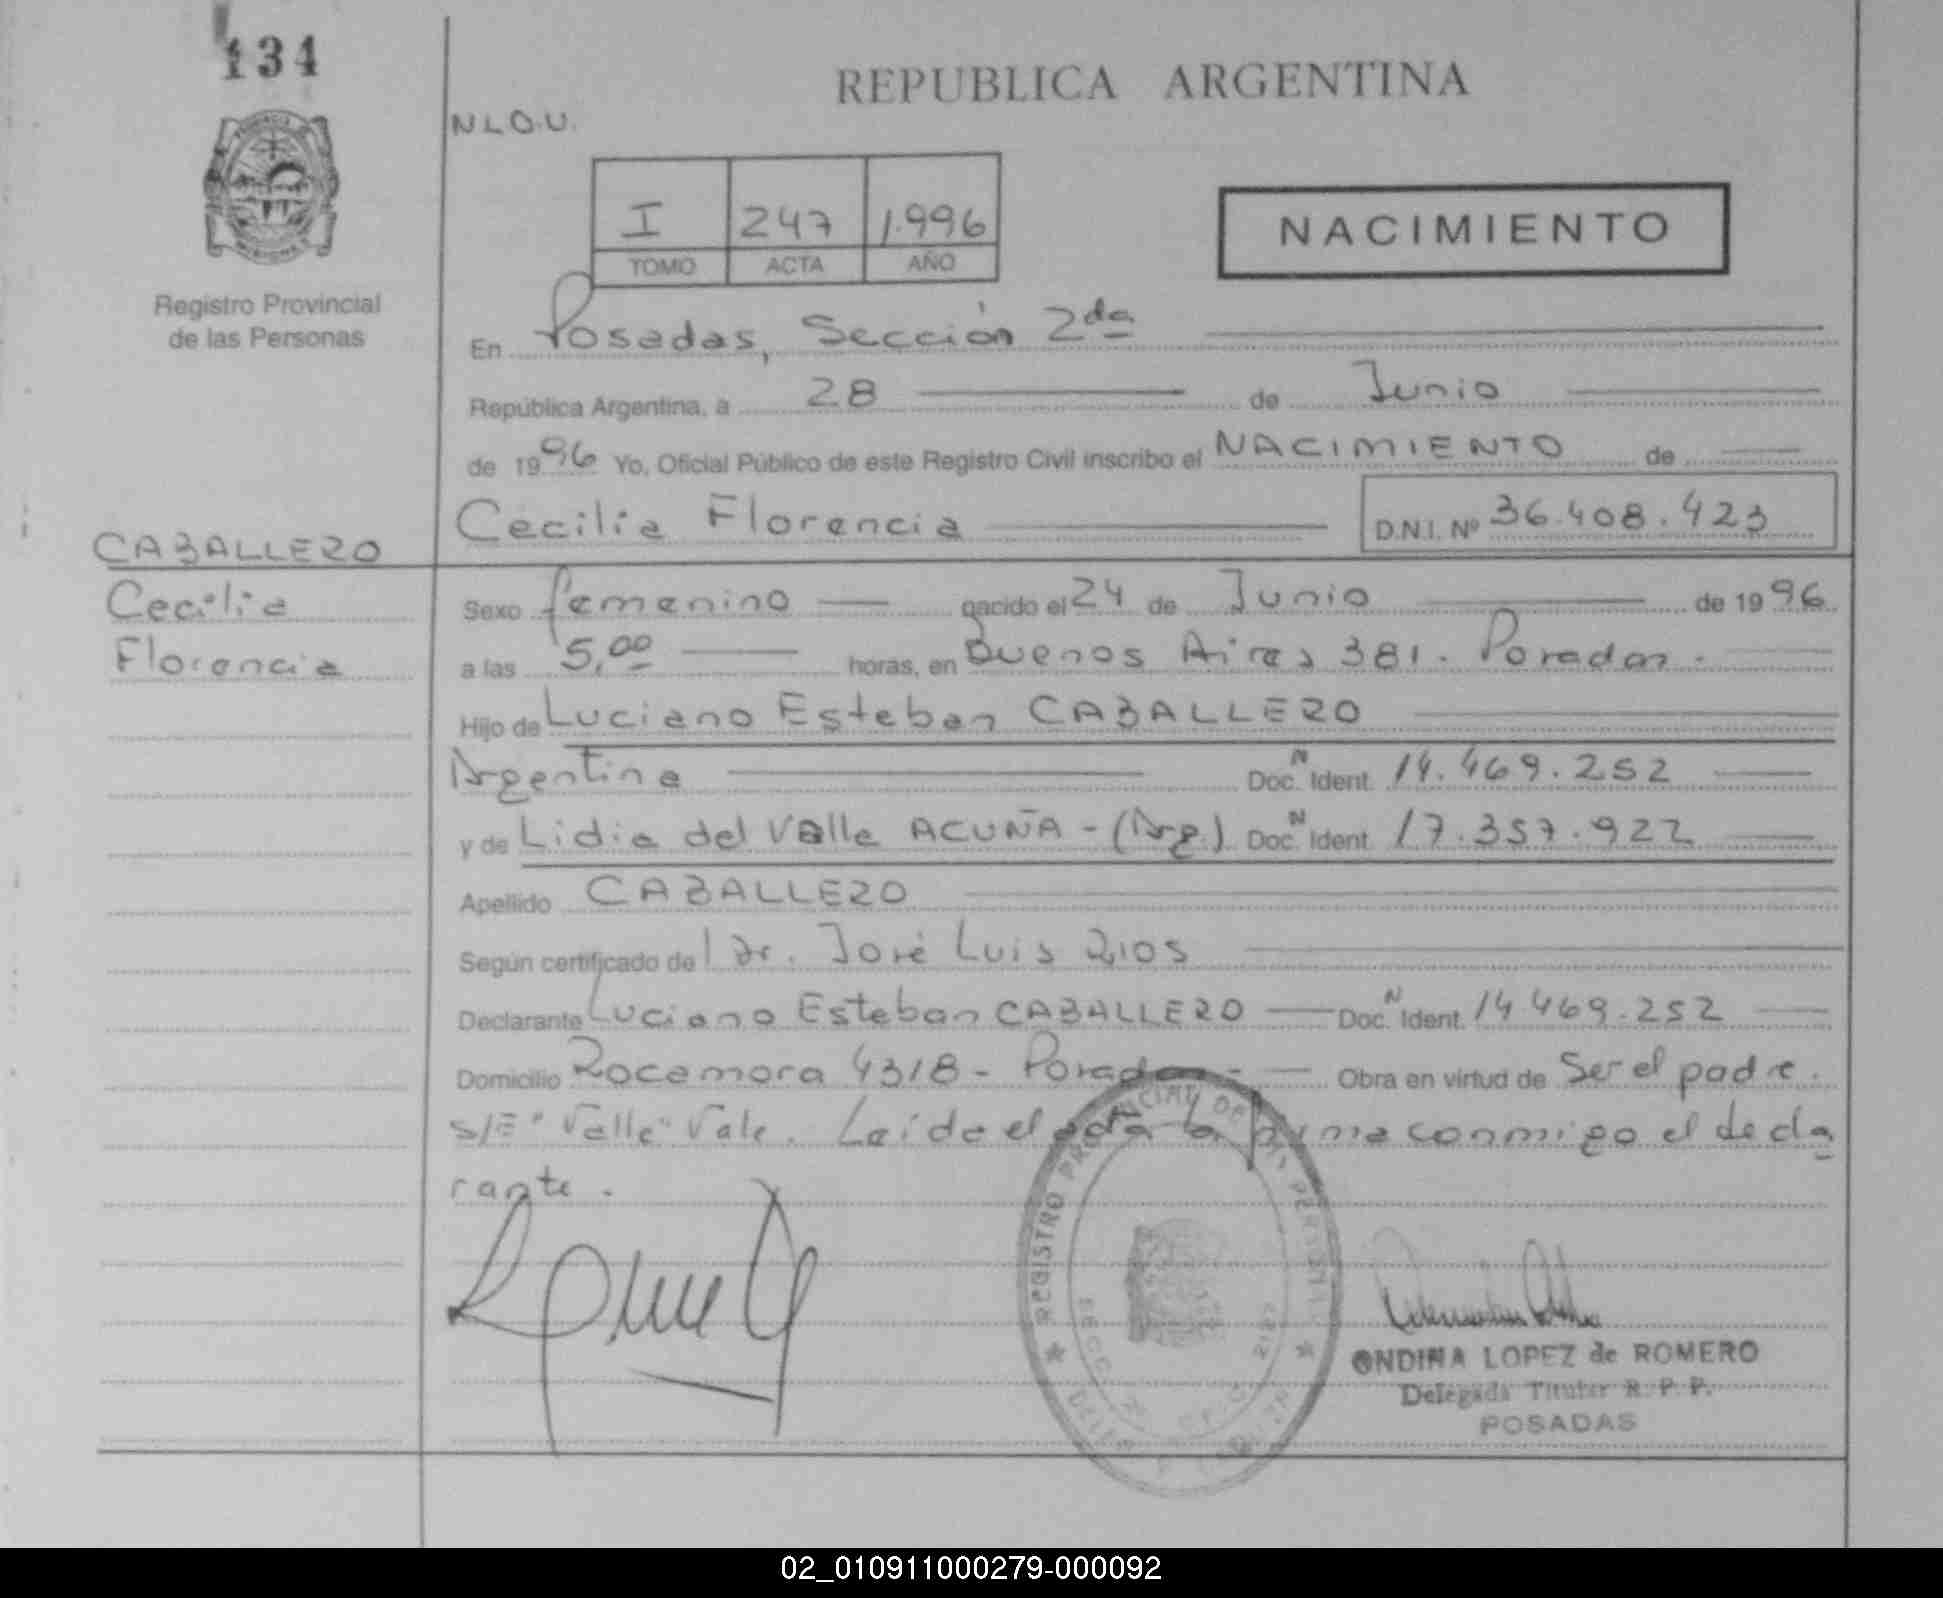 134
REPUBLICA ARGENTINA
N.L.O.U.
I 247 1.996
TOMO ACTA AÑO
NACIMIENTO
Registro Provincial
de las Personas
En Posadas, Sección 2da
República Argentina, a 28 de Junio
de 1996 Yo, Oficial Público de este Registro Civil inscribo el NACIMIENTO de
Cecilia Florencia D.N.I. Nº 36.408.423
CABALLERO
Cecilia
Florencia
Sexo femenino nacido el 24 de Junio de 1996
a las 5,00 horas, en Buenos Aires 381. Posadas.
Hijo de Luciano Esteban CABALLERO
Argentina Doc. N Ident. 14.469.252
y de Lidia del Valle ACUÑA - (Arg.) Doc. N Ident. 17.357.922
Apellido CABALLERO
Según certificado del Dr. José Luis Rios
Declarante Luciano Esteban CABALLERO Doc. N Ident. 14.469.252
Domicilio Rocamora 4318 - Posadas - Obra en virtud de Ser el padre.
S/E "Valle" Vale. Leída el acta la firma conmigo el decla
rante.
REGISTRO PROVINCIAL DE LAS PERSONAS
ONDINA LOPEZ de ROMERO
Delegada Titular R. P. P.
POSADAS
02_010911000279-000092